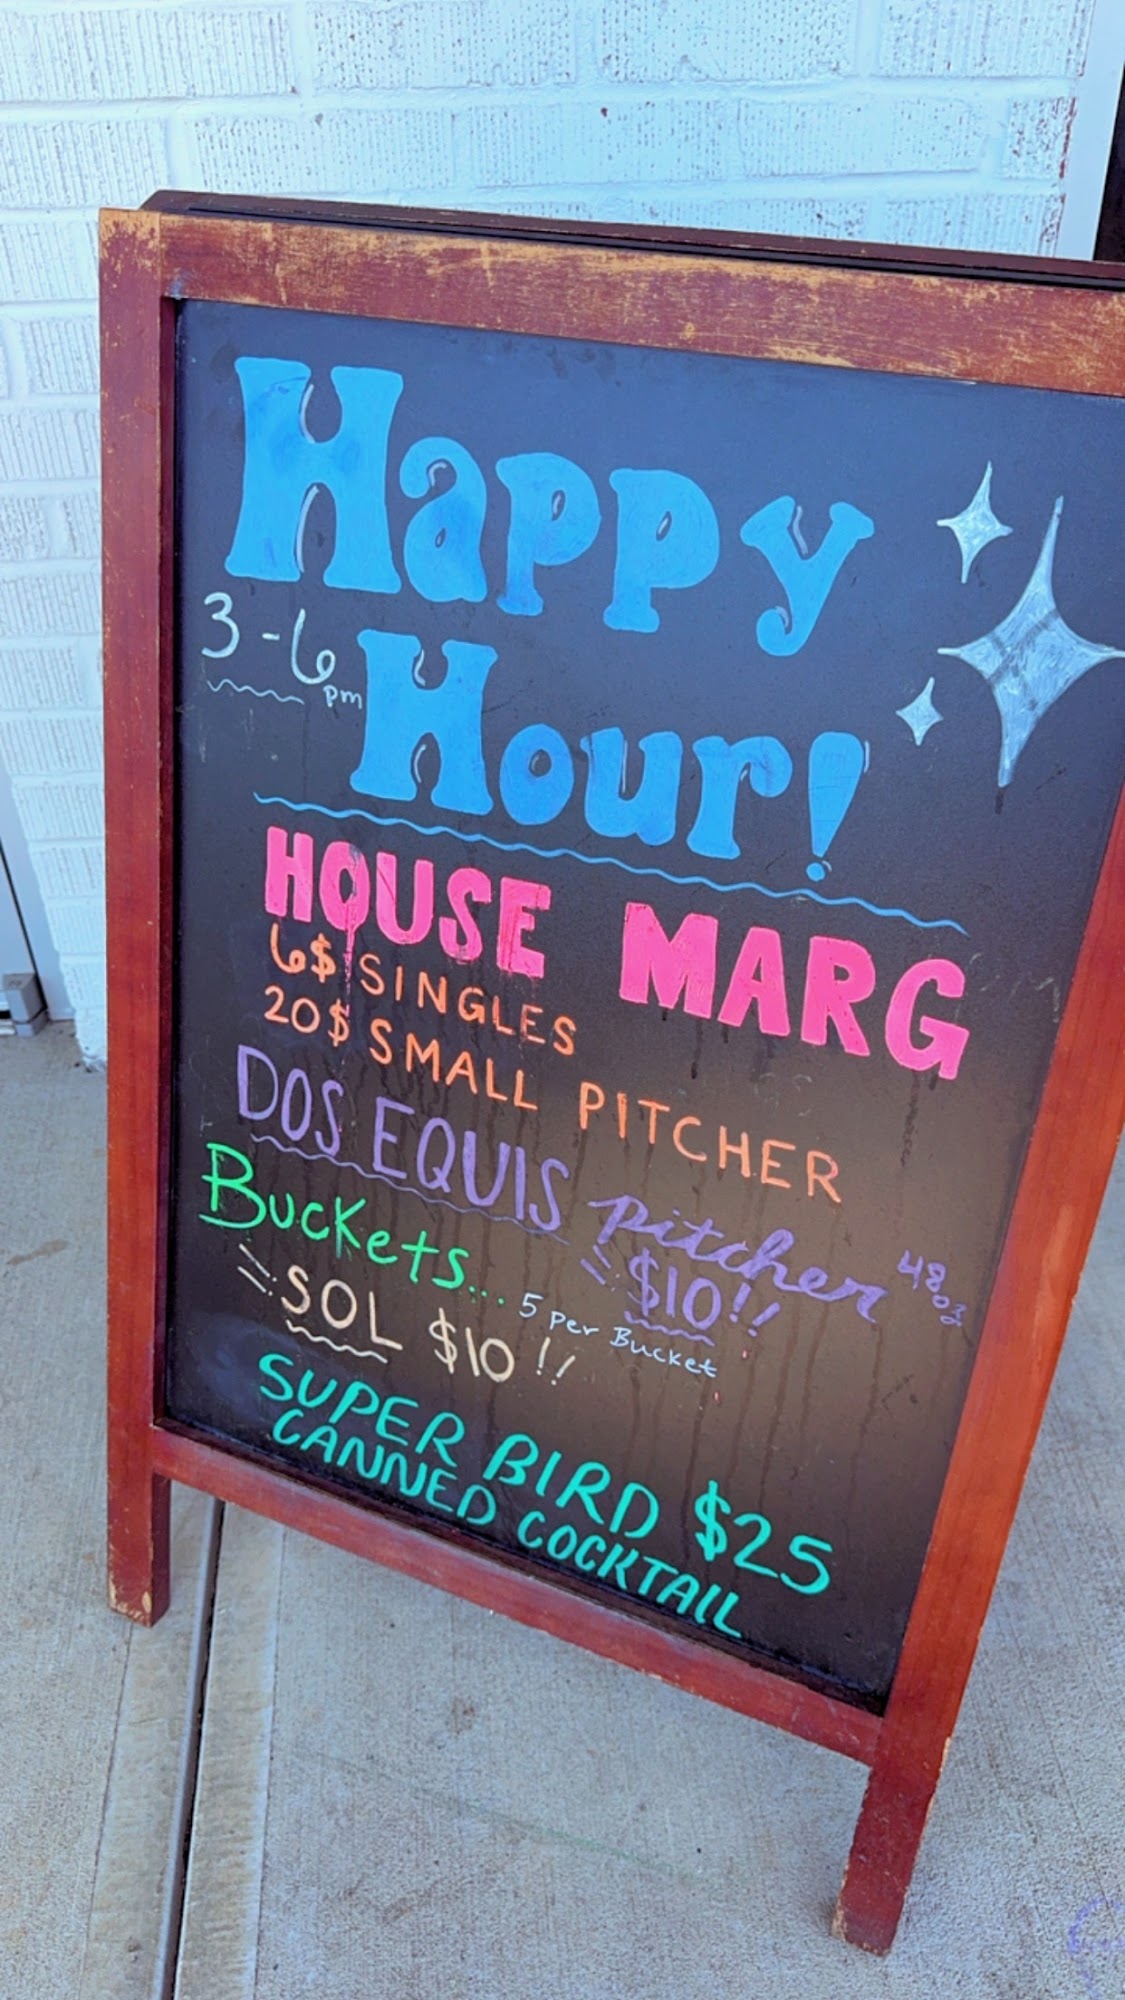 Happy
3-6 pm Hour!
HOUSE MARG
6$ SINGLES
20$ SMALL PITCHER
DOS EQUIS pitcher 48 oz
$10!!
Buckets... 5 per Bucket
SOL $10!!
SUPER BIRD $25
CANNED COCKTAIL